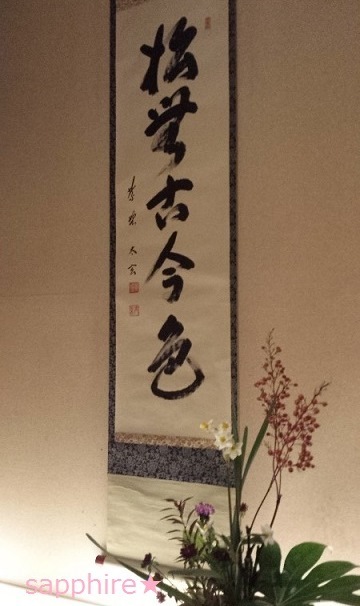 松無古今色
sapphire★